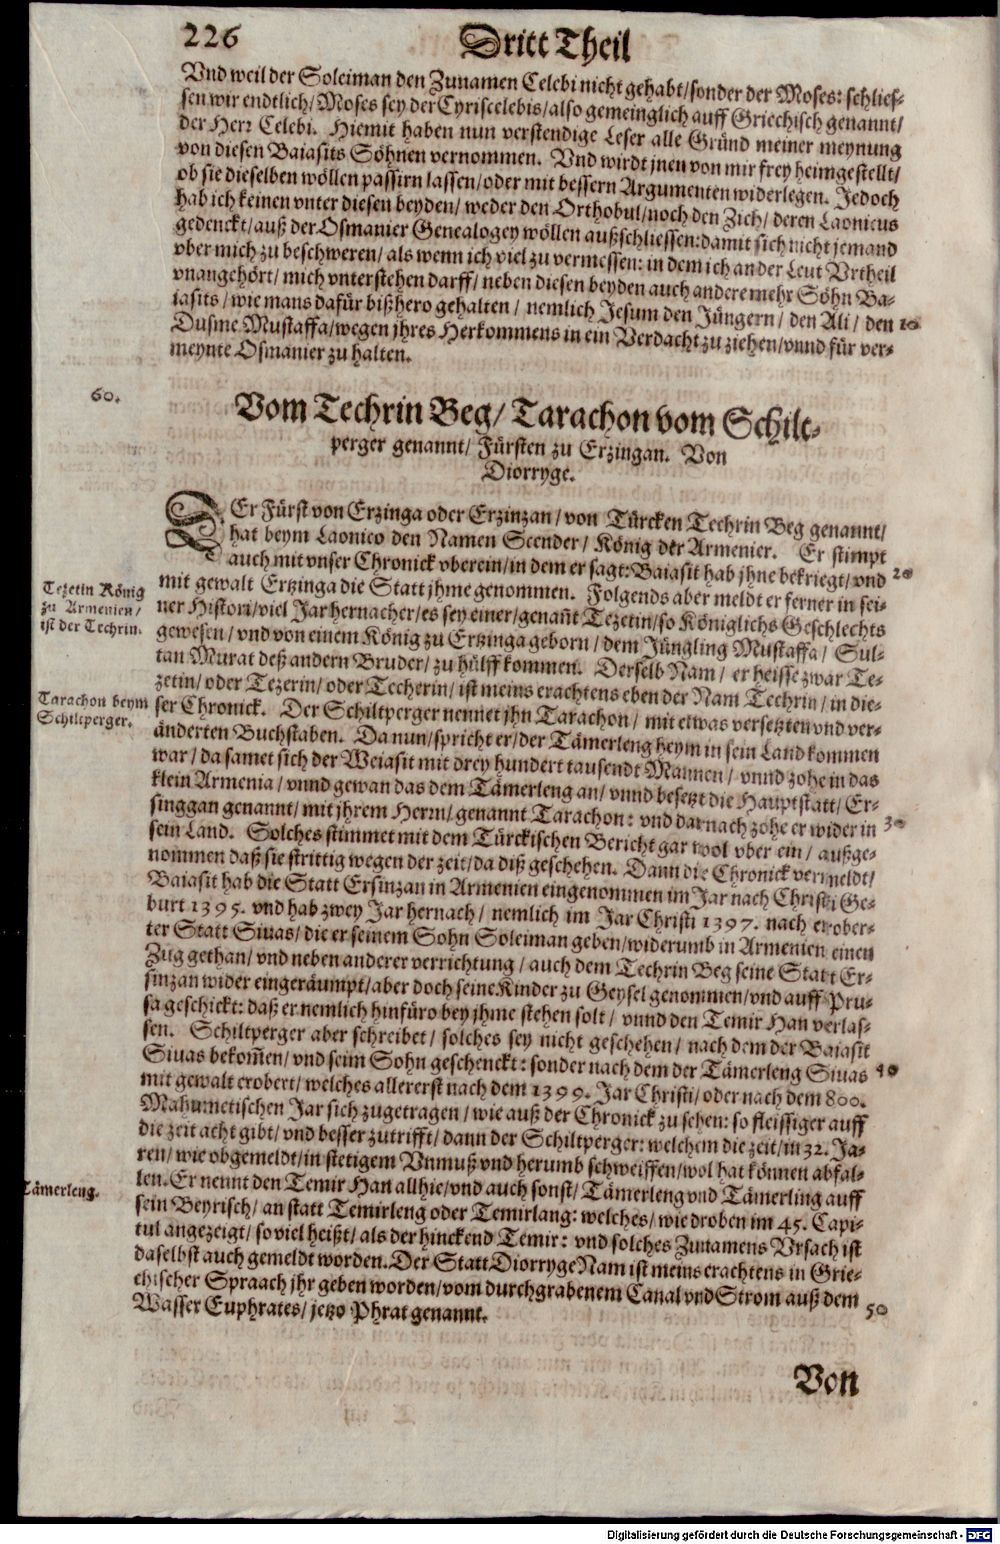 226
Dritt Theil
Vnd weil der Soleiman den Zunamen Celebi nicht gehabt/sonder der Moses: schlies-
sen wir endtlich/Moses sey der Cyriscelebis/also gemeinglich auff Griechisch genannt/
der Herr Celebi. Hiemit haben nun verstendige Leser alle Gründ meiner meynung
von diesen Baiasits Söhnen vernommen. Vnd wirdt jnen von mir frey heimgestellt/
ob sie dieselben wöllen passirn lassen/oder mit bessern Argumenten widerlegen. Jedoch
hab ich keinen vnter diesen beyden/ weder den Orthobul/noch den Zich/ deren Laonicus
gedenckt/auß der Osmanier Genealogey wöllen außschliessen: damit sich nicht jemand
vber mich zu beschweren/ als wenn ich viel zu vermessen: in dem ich an der Leut Vrtheil
vnangehört/ mich vnterstehen darff/ neben diesen beyden auch andere mehr Söhn Ba-
iasits / wie mans dafür bißhero gehalten / nemlich Jesum den Jüngern/ den Ali / den 10
Dusme Mustaffa/wegen jhres Herkommens in ein Verdacht zu ziehen/vnnd für ver-
meynte Osmanier zu halten.
60.
Vom Techrin Beg/ Tarachon vom Schilt-
perger genannt/ Fürsten zu Erzingan. Von
Diorryge.
DEr Fürst von Erzinga oder Erzinzan/ von Türcken Techrin Beg genannt/
hat beym Laonico den Namen Scender/ König der Armenier. Er stimpt
auch mit vnser Chronick vberein/in dem er sagt: Baiasit hab jhne bekriegt/vnd 20
mit gewalt Ertzinga die Statt jhme genommen. Folgends aber meldt er ferner in sei-
Tezetin König
zu Armenien/
ist der Techrin.
ner Histori/viel Jar hernacher/es sey einer/genañt Tezetin/so Königlichs Geschlechts
gewesen/ vnd von einem König zu Ertzinga geborn/ dem Jüngling Mustaffa/ Sul-
tan Murat deß andern Bruder/ zu hülff kommen. Derselb Nam/ er heisse zwar Te-
zetin/ oder Tezerin/ oder Techerin/ ist meins erachtens eben der Nam Techrin/ in die-
Tarachon beym
Schiltperger.
ser Chronick. Der Schiltperger nennet jhn Tarachon/ mit etwas versetzten vnd ver-
änderten Buchstaben. Da nun/spricht er/der Tämerleng heym in sein Land kommen
war/ da samet sich der Weiasit mit drey hundert tausendt Mannen/ vnnd zohe in das
klein Armenia/ vnnd gewan das dem Tämerleng an/ vnnd besetzt die Hauptstatt/ Er-
singgan genannt/ mit jhrem Herrn/ genannt Tarachon: vnd darnach zohe er wider in 30
sein Land. Solches stimmet mit dem Türckischen Bericht gar wol vber ein/ außge-
nommen daß sie strittig wegen der zeit/da diß geschehen. Dann die Chronick vermeldt/
Baiasit hab die Statt Ersinzan in Armenien eingenommen im Jar nach Christi Ge-
burt 1395. vnd hab zwey Jar hernach/ nemlich im Jar Christi 1397. nach erober-
ter Statt Siuas/ die er seinem Sohn Soleiman geben/widerumb in Armenien einen
Zug gethan/ vnd neben anderer verrichtung/ auch dem Techrin Beg seine Statt Er-
sinzan wider eingeräumpt/aber doch seine Kinder zu Geysel genommen/vnd auff Pru-
sa geschickt: daß er nemlich hinfüro bey jhme stehen solt/ vnnd den Temir Han verlas-
sen. Schiltperger aber schreibet/ solches sey nicht geschehen/ nach dem der Baiasit
Siuas bekom̃en/ vnd seim Sohn geschenckt: sonder nach dem der Tämerleng Siuas 40
mit gewalt erobert/ welches allererst nach dem 1399. Jar Christi/ oder nach dem 800.
Mahumetischen Jar sich zugetragen/ wie auß der Chronick zu sehen: so fleissiger auff
die zeit acht gibt/ vnd besser zutrifft/ dann der Schiltperger: welchem die zeit/ in 32. Ja-
ren/ wie obgemeldt/ in stetigem Vnmuß vnd herumb schweiffen/ wol hat können abfal-
Tämerleng.
len. Er nennt den Temir Han allhie/vnd auch sonst/ Tämerleng vnd Tämerling auff
sein Beyrisch/ an statt Temirleng oder Temirlang: welches/ wie droben im 45. Capi-
tul angezeigt/ so viel heißt/ als der hinckend Temir: vnd solches Zunamens Vrsach ist
daselbst auch gemeldt worden. Der Statt Diorryge Nam ist meins erachtens in Grie-
chischer Spraach jhr geben worden/ vom durchgrabenem Canal vnd Strom auß dem
Wasser Euphrates/ jetzo Phrat genannt. 50
Von
Digitalisierung gefördert durch die Deutsche Forschungsgemeinschaft - DFG